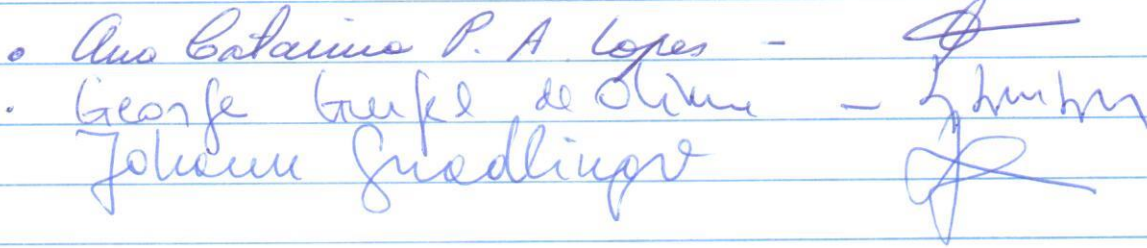 • Ana Catarina P. A. Lopes -
. George Gurgel de Oliveira -
Johann Gnadlinger